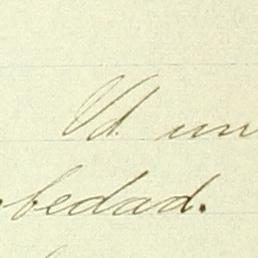 Vd. un
bedad.